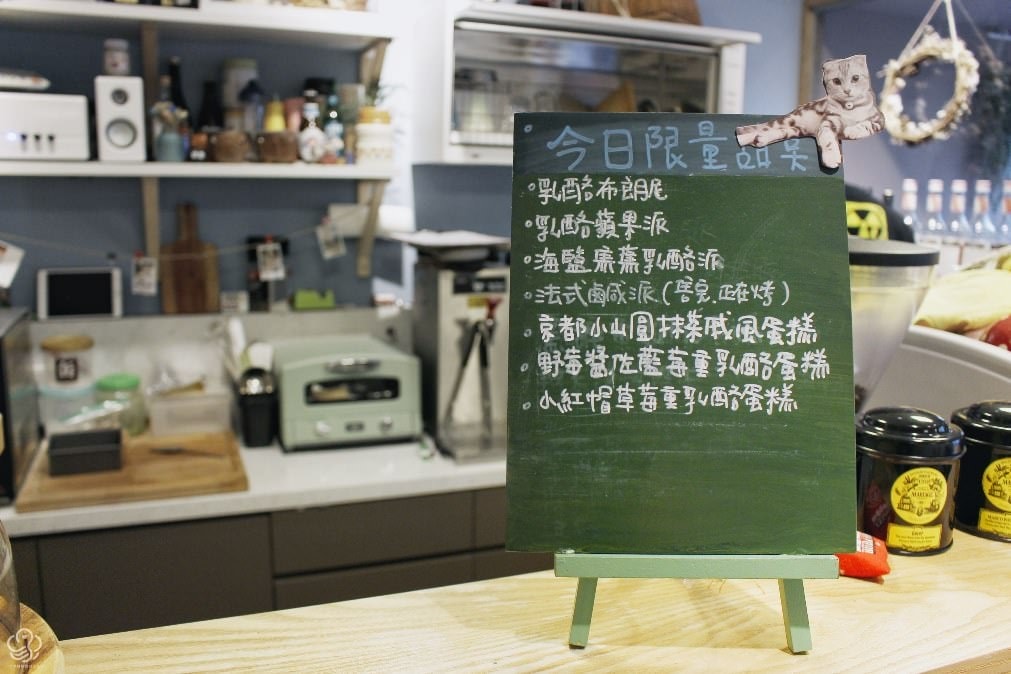 今日限量甜點
乳酪布朗尼
乳酪蘋果派
海鹽焦蕉乳酪派
法式鹹派(培皂,正在烤)
京都小山園抹茶戚風蛋糕
野莓醬佐藍莓重乳酪蛋糕
小紅帽草莓重乳酪蛋糕
MARIAGE